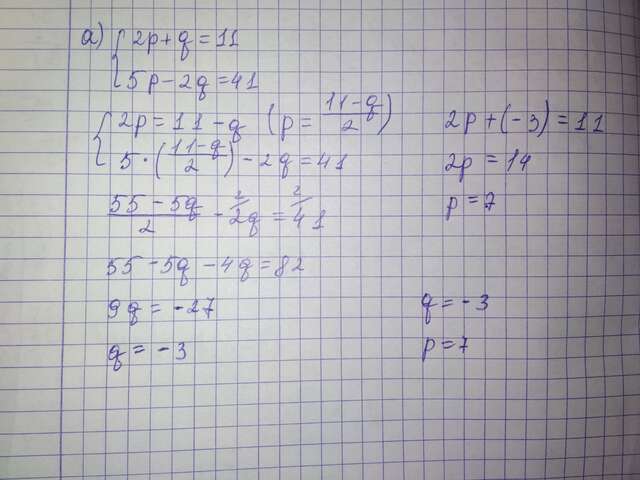 а) { 2p + q = 11
5p - 2q = 41
{ 2p = 11 - q (p = (11-q)/2)
5 · ((11-q)/2) - 2q = 41
(55 - 5q)/2 - 2/2q = 2/41
55 - 5q - 4q = 82
9q = -27
q = -3
2p + (-3) = 11
2p = 14
p = 7
q = -3
p = 7